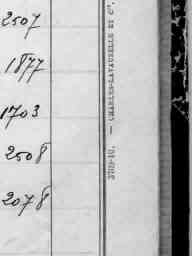 2507
1877
1703
2508
2078
3709-10. — CHARLES-LAVAUZELLE ET Cⁱᵉ.